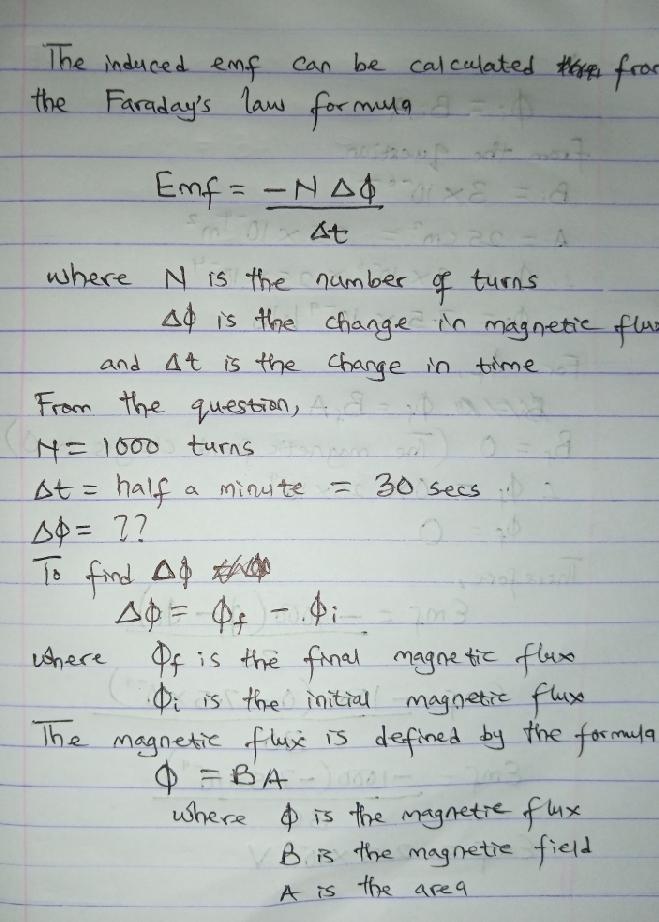 The induced emf can be calculated from
the Faraday's law formula
Emf = -NΔΦ
Δt
where N is the number of turns
ΔΦ is the change in magnetic flux
and Δt is the change in time
From the question,
N = 1000 turns
Δt = half a minute = 30 secs
ΔΦ = ??
To find ΔΦ
ΔΦ = Φf - Φi
where Φf is the final magnetic flux
Φi is the initial magnetic flux
The magnetic flux is defined by the formula
Φ = BA
where Φ is the magnetic flux
B is the magnetic field
A is the area